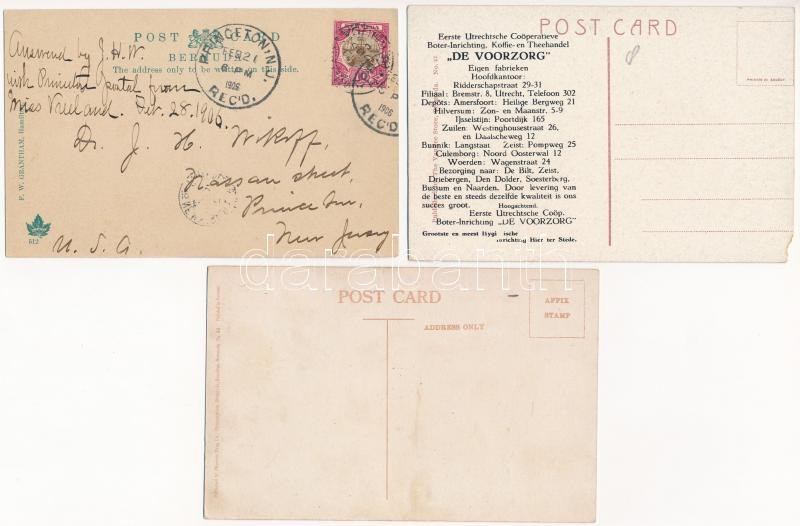 POST CARD
BERMUDA
The address only to be written on this side.
Answered by J. H. W.
with Princeton postal from
Miss Vreeland. Feb. 28. 1906.
PRINCETON, N.J.
FEB 21
1906
REC'D.
1906
REC'D.
Dr. J. H. Wikoff,
Nassau street,
Princeton,
New Jersey
U. S. A.
F. W. GRANTHAM, Hamilton
512
POST CARD
Eerste Utrechtsche Coöperatieve
Boter-Inrichting, Koffie- en Theehandel
„DE VOORZORG"
Eigen fabrieken
Hoofdkantoor:
Ridderschapstraat 29-31
Filiaal: Bremstr. 8, Utrecht, Telefoon 302
Depôts: Amersfoort: Heilige Bergweg 21
Hilversum: Zon- en Maanstr. 5-9
IJsselstijn: Poortdijk 165
Zuilen: Westinghousestraat 26,
en Daalscheweg 12
Bunnik: Langstaat Zeist: Pompweg 25
Culemborg: Noord Oosterwal 12
Woerden: Wagenstraat 24
Bezorging naar: De Bilt, Zeist,
Driebergen, Den Dolder, Soesterberg,
Bussum en Naarden. Door levering van
de beste en steeds dezelfde kwaliteit is ons
succes groot. Hoogachtend.
Eerste Utrechtsche Coöp.
Boter-Inrichting „DE VOORZORG"
Grootste en meest Hygi ische
nrichting Hier ter Stede.
8
darabanth
POST CARD
ADDRESS ONLY
AFFIX
STAMP